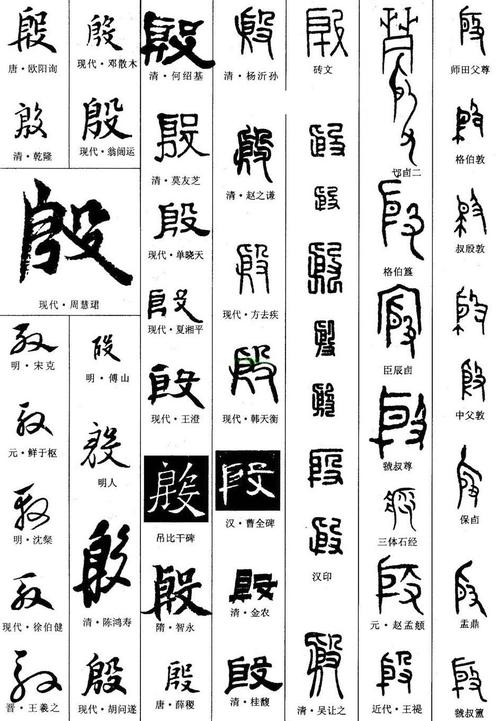 殷
唐·欧阳询
殷
清·乾隆
殷
现代·邓散木
殷
现代·翁闿运
殷
现代·周慧珺
殷
明·宋克
殷
元·鲜于枢
殷
明·沈粲
殷
现代·徐伯健
殷
晋·王羲之
殷
明·傅山
殷
明人
殷
清·陈鸿寿
殷
现代·胡问遂
殷
清·何绍基
殷
清·莫友芝
殷
现代·单晓天
殷
现代·夏湘平
殷
现代·王澄
殷
吊比干碑
殷
隋·智永
殷
唐·薛稷
殷
清·杨沂孙
殷
清·赵之谦
殷
现代·方去疾
殷
现代·韩天衡
殷
汉·曹全碑
殷
清·金农
殷
清·桂馥
殷
砖文
殷
殷
殷
殷
殷
殷
殷
汉印
殷
清·吴让之
殷
格伯簋
殷
臣辰卣
殷
虢叔尊
殷
三体石经
殷
元·赵孟頫
殷
近代·王禔
殷
师田父尊
殷
格伯敦
殷
叔殷敦
殷
殷
中父敦
殷
保卣
殷
盂鼎
殷
虢叔簋